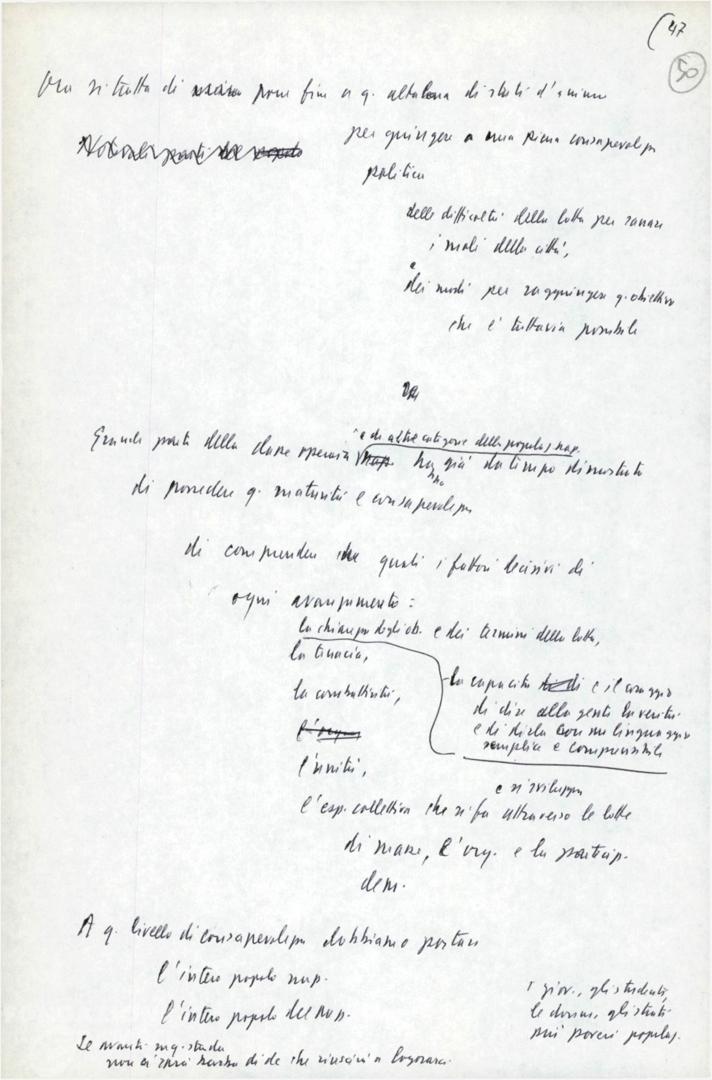 47
50
Ora si tratta di porre fine a q. altalena di stati d'animo
per giungere a una piena consapevolezza
politica
delle difficoltà della lotta per sanare
i mali della città,
e
dei modi per raggiungere q. obiettivo
che è tuttavia possibile
e di altre categorie della popolaz. nap.
Grande parte della classe operaia nap. ha già da tempo dimostrato
hanno
di possedere q. maturità e consapevolezza
di comprendere quali i fattori decisivi di
ogni avanzamento:
la chiarezza degli ob. e dei termini della lotta,
la tenacia,
la combattività,
la capacità di e il coraggio
di dire alla gente la verità
e di dirla con un linguaggio
semplice e comprensibile
l'org.
l'unità,
e si sviluppa
l'esp. collettiva che si fa attraverso le lotte
di massa, l'org. e la particip.
dem.
A q. livello di consapevolezza dobbiamo portare
l'intero popolo nap.
l'intero popolo del
i giov., gli studenti,
le donne, gli strati
più poveri popolaz.
Se avanti su q. strada
non ci sarà di dc che riuscirà a logorarci.